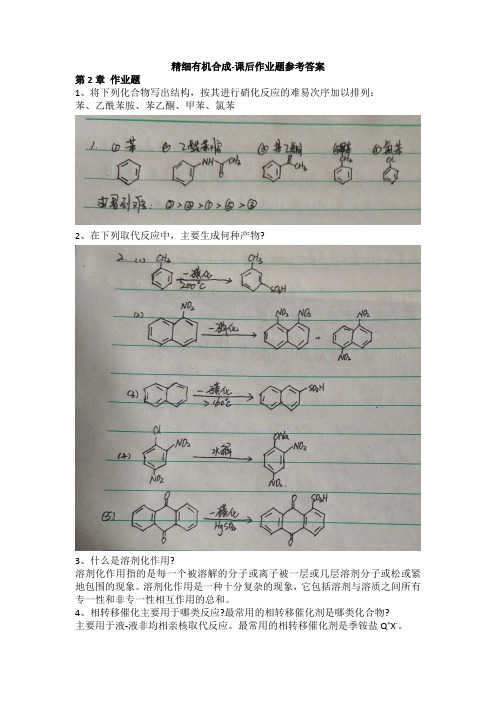 精细有机合成-课后作业题参考答案
第2章 作业题
1、将下列化合物写出结构，按其进行硝化反应的难易次序加以排列：
苯、乙酰苯胺、苯乙酮、甲苯、氯苯
1. ① 苯 ② 乙酰苯胺 ③ 苯乙酮 ④甲苯 ⑤氯苯
NH CH3 O O CH3 CH3 Cl
由易到难： ②>④>①>⑤>③
2、在下列取代反应中，主要生成何种产物?
2. (1) CH3 一磺化 200℃ CH3 SO3H
(2) NO2 NO2 NO2 + NO2 NO2
(3) 一磺化 >160℃ SO3H
(4) Cl NO2 NO2 水解 ONa NO2 NO2
(5) O O 一磺化 HgSO4 O SO3H O
3、什么是溶剂化作用?
溶剂化作用指的是每一个被溶解的分子或离子被一层或几层溶剂分子或松或紧
地包围的现象。溶剂化作用是一种十分复杂的现象，它包括溶剂与溶质之间所有
专一性和非专一性相互作用的总和。
4、相转移催化主要用于哪类反应?最常用的相转移催化剂是哪类化合物?
主要用于液-液非均相亲核取代反应。最常用的相转移催化剂是季铵盐 Q⁺X⁻。